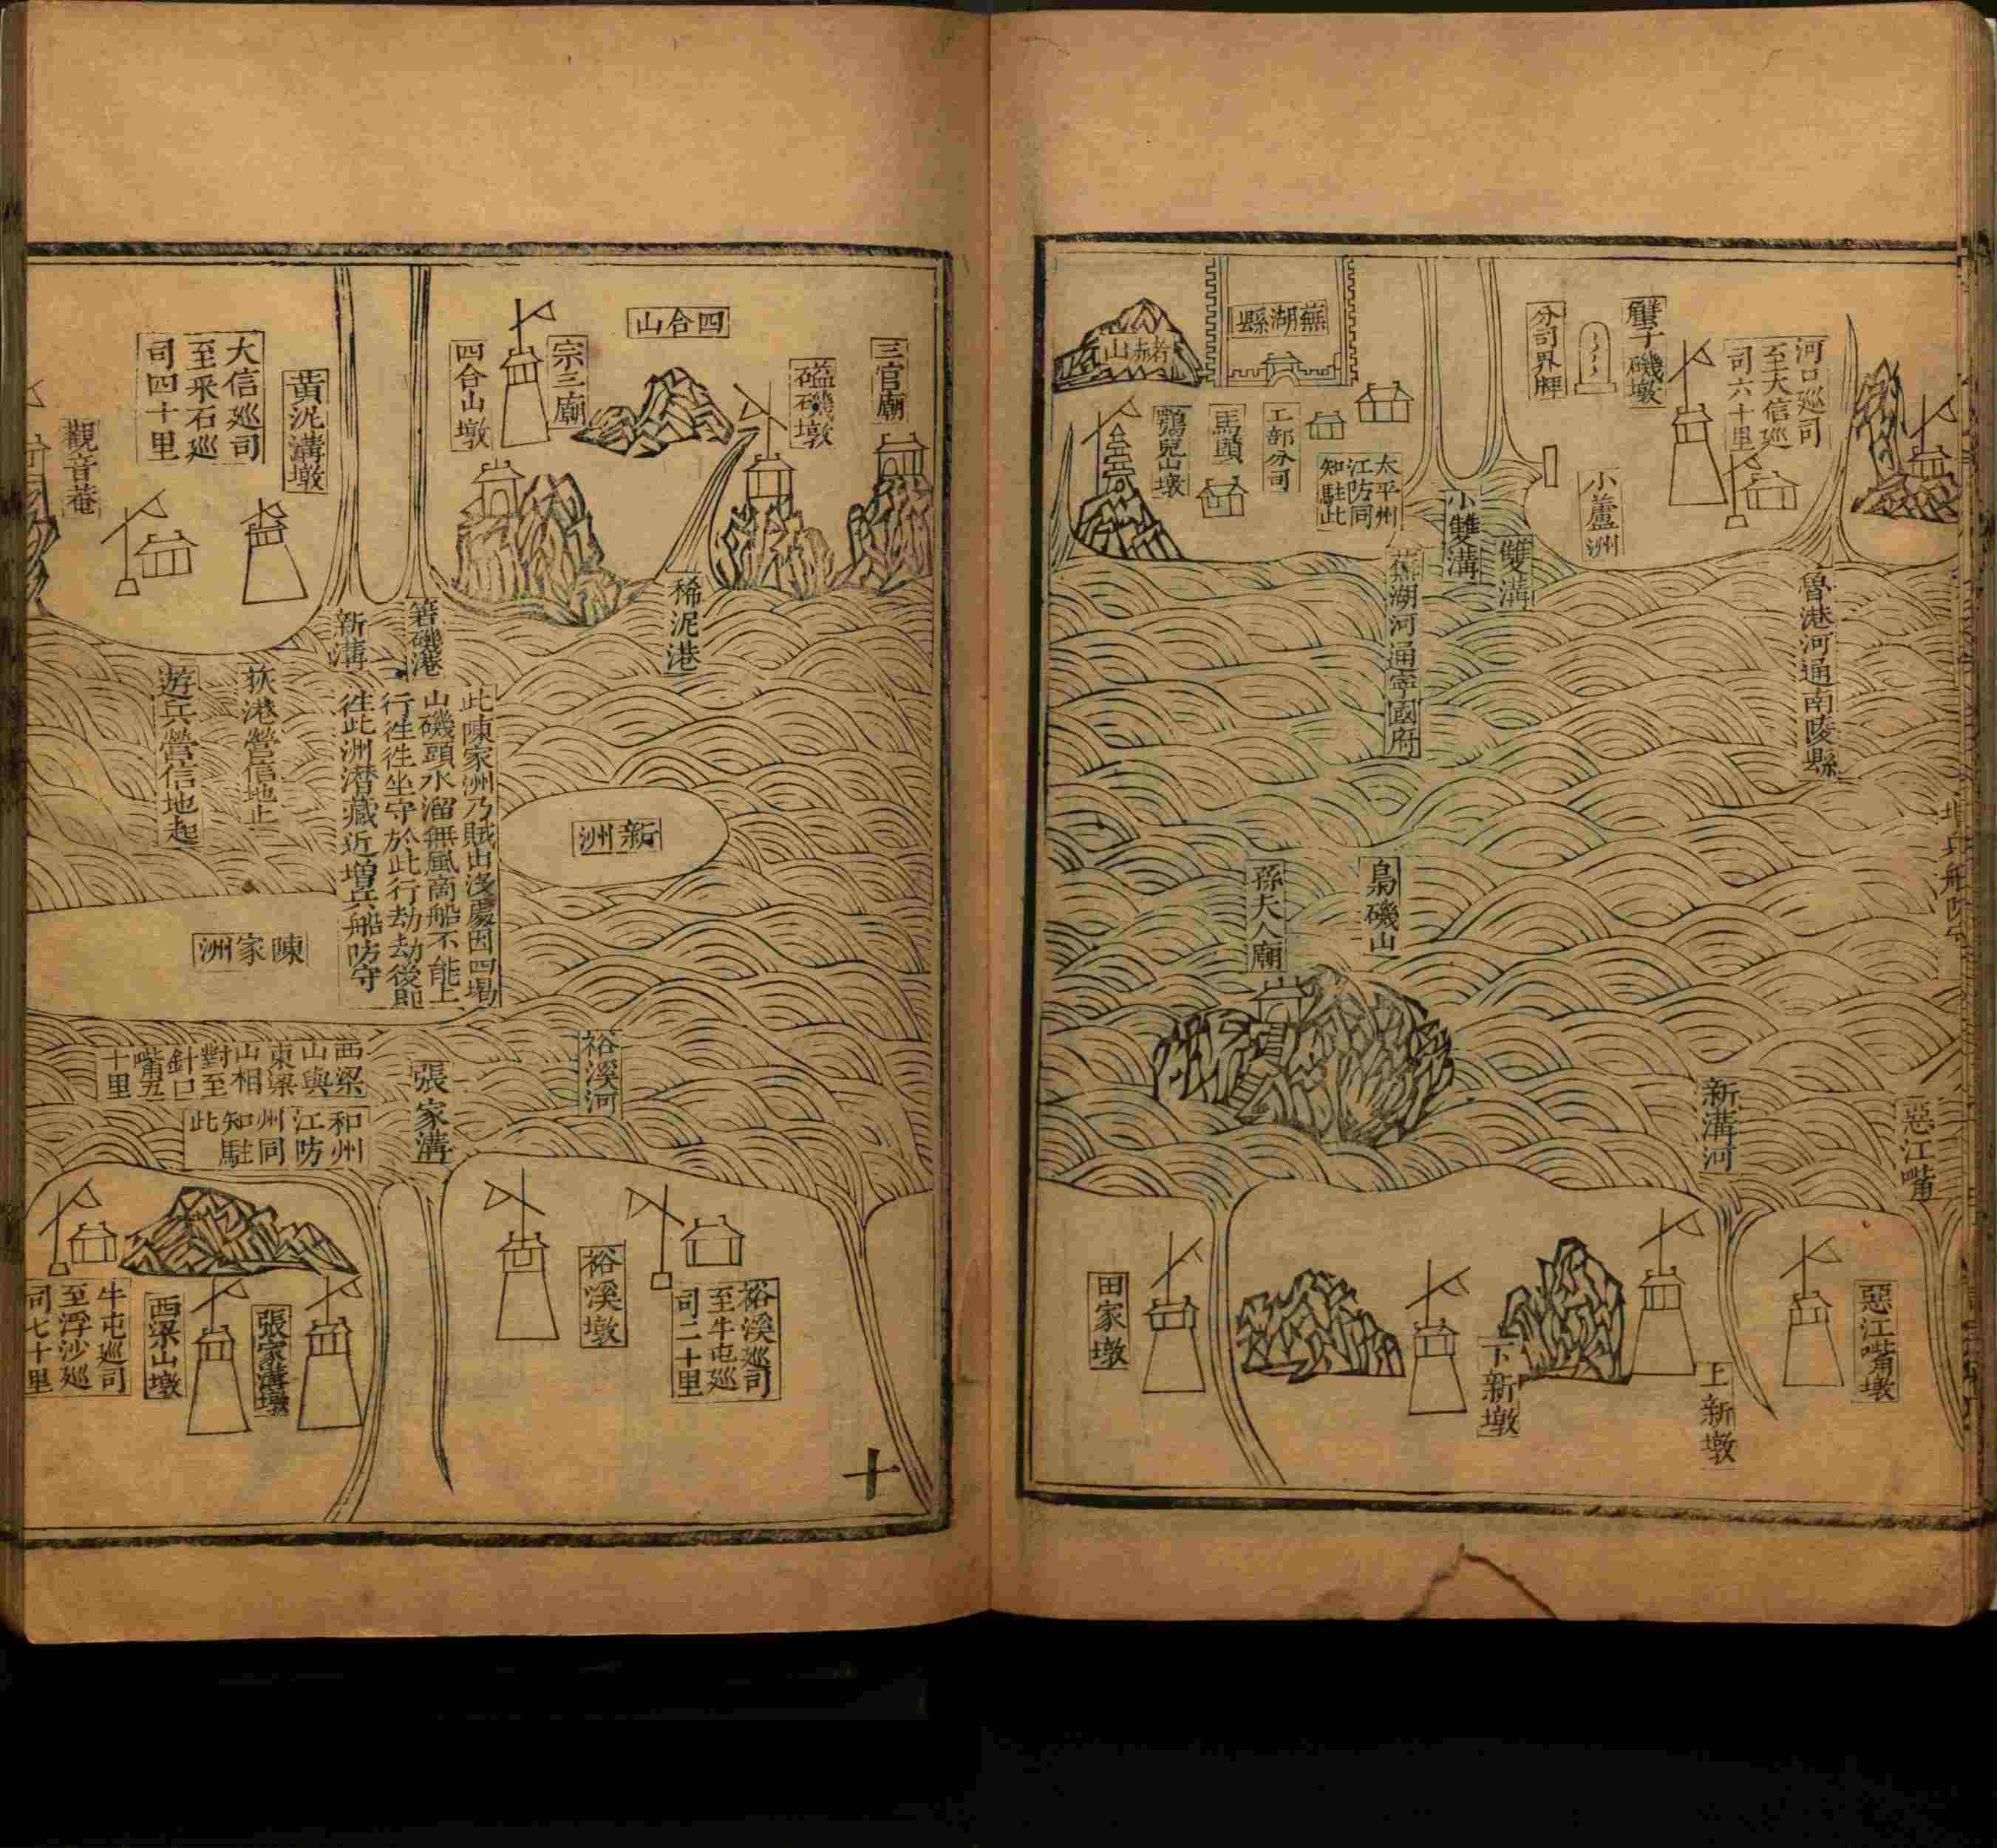 河口巡司
至大信巡
司六十里
磯墩
分司界牌
小蘆洲
魯港河通南陵縣
雙溝
小雙溝
蕪湖縣
蕪湖河通寧國府
太平州
江防同
知駐此
工部分司
馬頭
鶚兒山墩
赭山
梟磯山
孫夫人廟
惡江嘴
新溝河
惡江嘴墩
上新墩
下新墩
田家墩
三官廟
磯墩
四合山
宗三廟
四合山墩
稀泥港
磯港
新溝
黃泥溝墩
大信巡司
至采石巡
司四十里
觀音菴
荻港營信地止
遊兵營信地起
新洲
此陳家洲乃賊出沒處因四褐
山磯頭水溜無風商船不能上
行往往坐守於此行劫劫後即
往此洲潛藏近增兵船防守
陳家洲
裕溪河
張家溝
西梁
山與
東梁
山相
對至
針口
嘴五
十里
和州
江防
州同
知駐
此
裕溪巡司
至牛屯巡
司二十里
裕溪墩
張家溝墩
西梁山墩
牛屯巡司
至浮沙巡
司七十里
十